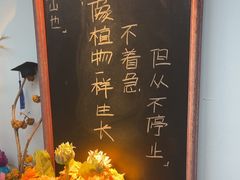 山也
像植物一样生长
不着急
但从不停止」